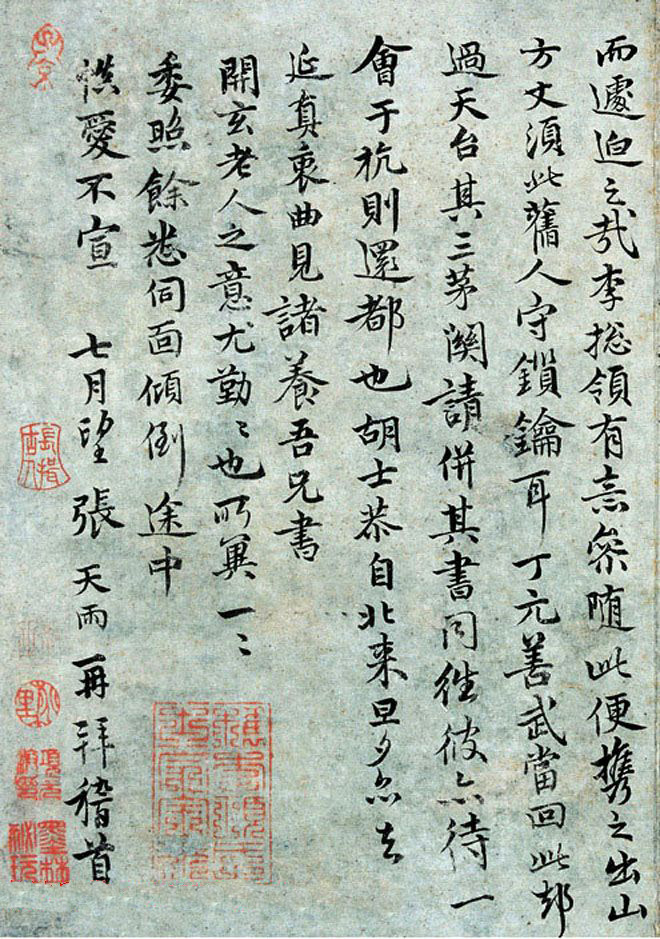 而遽迫之哉李揔領有意參随此便攜之出山
方丈須此舊人守鎖鑰耳丁元善武當回此却
過天台其三茅閞請併其書同往彼亦待一
會于杭則還都也胡士恭自北來旦夕亦去
延真衷曲見諸養吾兄書
開玄老人之意尤勤〻也所冀一〻
委照餘悉伺面傾倒途中
慎愛不宣 七月望 張天雨再拜稽首
墨林祕玩